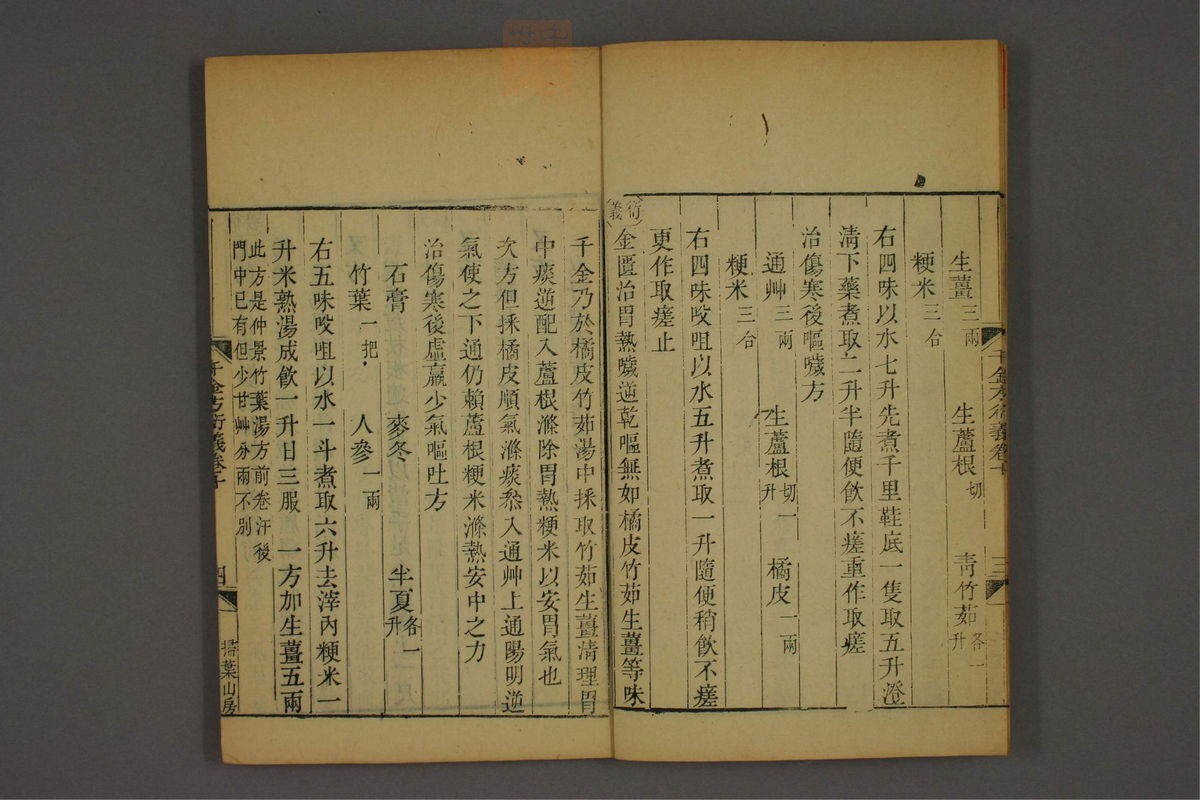 生薑三兩 生蘆根切 青竹茹各一升
粳米三合
右四味以水七升先煮千里鞋底一隻取五升澄
淸下藥煮取二升半隨便飲不瘥重作取瘥
治傷寒後嘔噦方
通艸三兩 生蘆根切一升 橘皮一兩
粳米三合
右四味㕮咀以水五升煮取一升隨便稍飲不瘥
更作取瘥止
衍義 金匱治胃熱噦逆乾嘔無如橘皮竹茹生薑等味
千金方衍義卷十 三
千金乃於橘皮竹茹湯中採取竹茹生薑清理胃
中痰逆配入蘆根滌除胃熱粳米以安胃氣也
次方但採橘皮順氣滌痰叅入通艸上通陽明逆
氣使之下通仍賴蘆根粳米滌熱安中之力
治傷寒後虛羸少氣嘔吐方
石膏 麥冬 半夏各一升
竹葉一把 人參一兩
右五味㕮咀以水一斗煮取六升去滓內粳米一
升米熟湯成飲一升日三服 一方加生薑五兩
此方是仲景竹葉湯方前卷汗後
門中已有但少甘艸分兩不別
千金方衍義卷十 四 掃葉山房